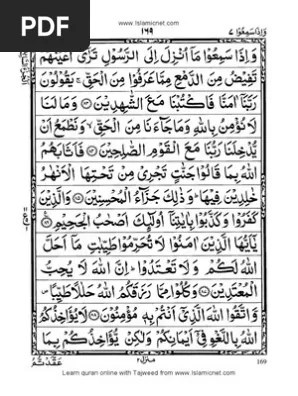 PDF
www.Islamicnet.com
وَإِذَا سَمِعُوا ٧
١٦٩
وَإِذَا سَمِعُوا مَآ أُنْزِلَ إِلَى الرَّسُوْلِ تَرٰٓى أَعْيُنَهُمْ
تَفِيْضُ مِنَ الدَّمْعِ مِمَّا عَرَفُوْا مِنَ الْحَقِّ ۚ يَقُوْلُوْنَ
رَبَّنَآ اٰمَنَّا فَاكْتُبْنَا مَعَ الشّٰهِدِيْنَ ﴿٨٣﴾ وَمَا لَنَا
لَا نُؤْمِنُ بِاللّٰهِ وَمَا جَآءَنَا مِنَ الْحَقِّ ۙ وَنَطْمَعُ أَنْ
يُّدْخِلَنَا رَبُّنَا مَعَ الْقَوْمِ الصّٰلِحِيْنَ ﴿٨٤﴾ فَأَثَابَهُمُ
اللّٰهُ بِمَا قَالُوْا جَنّٰتٍ تَجْرِيْ مِنْ تَحْتِهَا الْأَنْهٰرُ
خٰلِدِيْنَ فِيْهَا ۚ وَذٰلِكَ جَزَآءُ الْمُحْسِنِيْنَ ﴿٨٥﴾ وَالَّذِيْنَ
كَفَرُوْا وَكَذَّبُوْا بِاٰيٰتِنَآ أُولٰٓئِكَ أَصْحٰبُ الْجَحِيْمِ ﴿٨٦﴾
يٰٓأَيُّهَا الَّذِيْنَ اٰمَنُوْا لَا تُحَرِّمُوْا طَيِّبٰتِ مَآ أَحَلَّ
اللّٰهُ لَكُمْ وَلَا تَعْتَدُوْا ۚ إِنَّ اللّٰهَ لَا يُحِبُّ
الْمُعْتَدِيْنَ ﴿٨٧﴾ وَكُلُوْا مِمَّا رَزَقَكُمُ اللّٰهُ حَلٰلًا طَيِّبًا ۪
وَّاتَّقُوا اللّٰهَ الَّذِيْٓ أَنْتُمْ بِهٖ مُؤْمِنُوْنَ ﴿٨٨﴾ لَا يُؤَاخِذُكُمُ
اللّٰهُ بِاللَّغْوِ فِيْٓ أَيْمَانِكُمْ وَلٰكِنْ يُّؤَاخِذُكُمْ بِمَا
عَقَّدْتُّمُ
منزل ٢
169
Learn quran online with Tajweed from www.Islamicnet.com